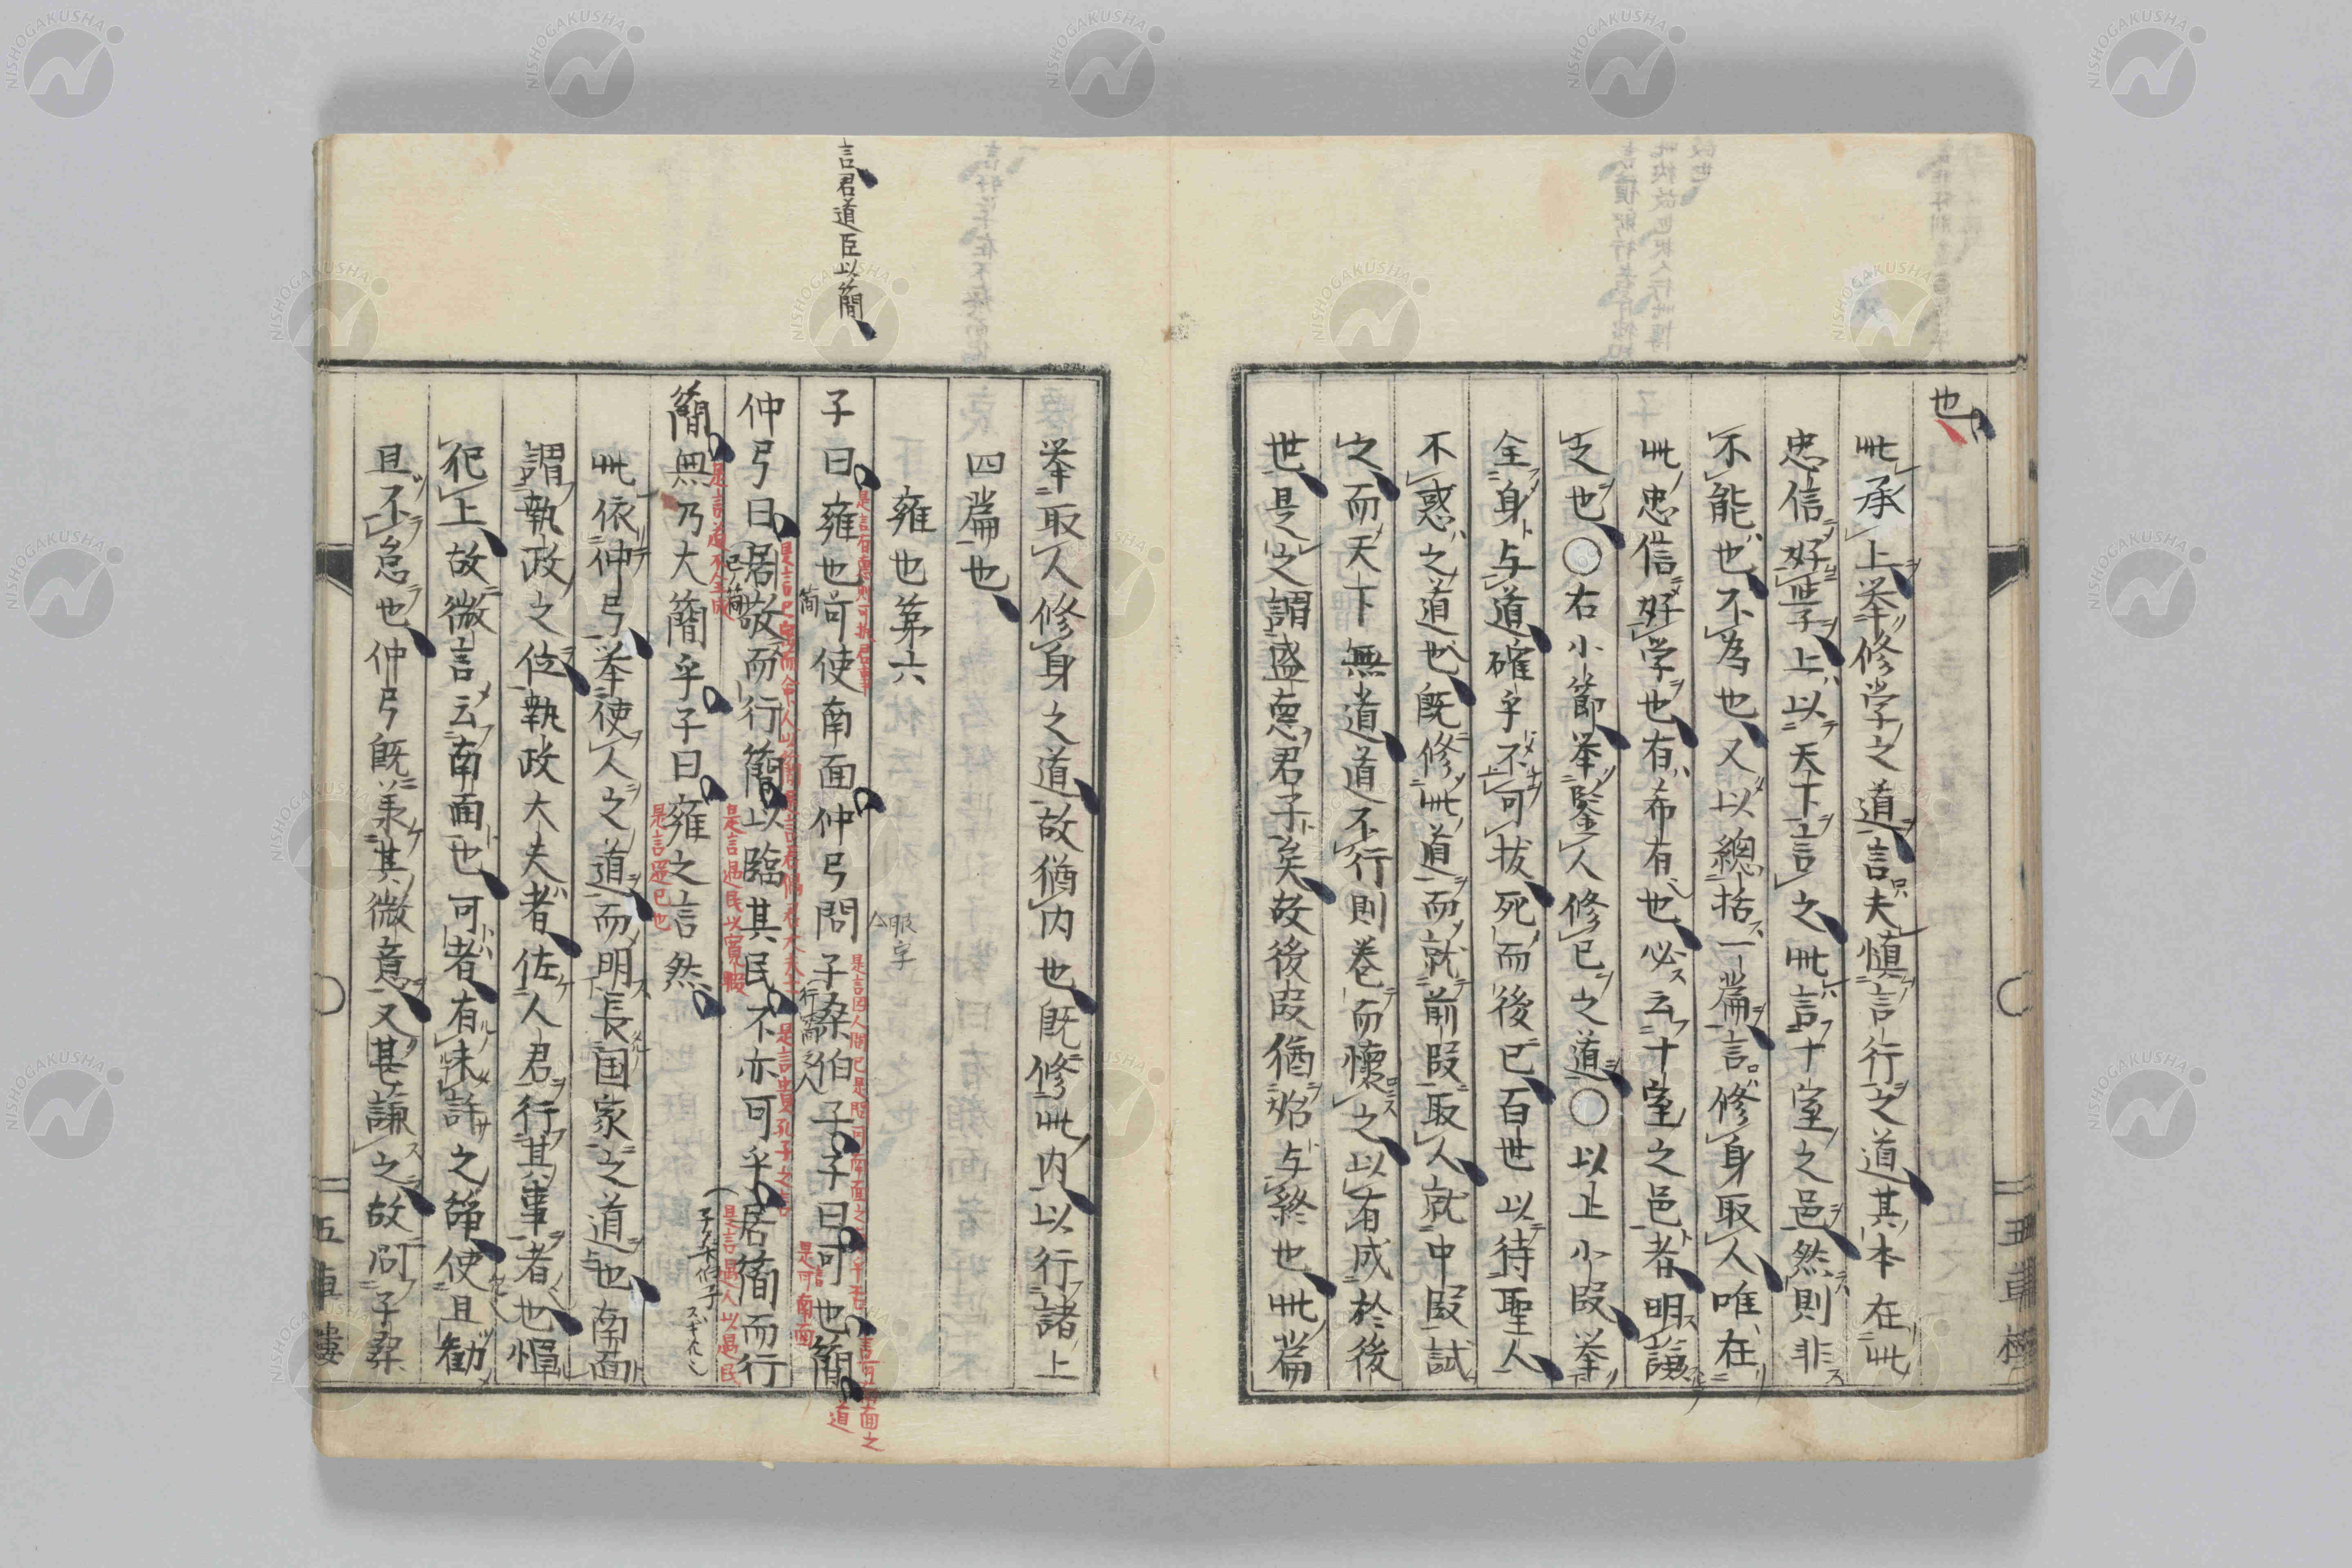 也
此承上挙修学之道言夫慎言行之道其本在此
忠信好学上以天下言之此言十室之邑然則非
不能也不為也又以總括一篇言修身取人唯在
此忠信好学也有希有也必云十室之邑者明謙
之也〇右小節挙鑒人修已之道〇以止小段挙
全身与道確乎不可抜死而後已百世以待聖人
不惑之道也既修此道而就前段取人就中段試
之而天下無道道不行則巻而懐之以有成於後
世是之謂盛悳君子矣故後段猶始与終也此篇
挙取人修身之道故猶内也既修此内以行諸上
四篇也
雍也第六
子曰雍也可使南面仲弓問子桑伯子子曰可也簡
仲弓曰居敬而行簡以臨其民不亦可乎居簡而行
簡無乃大簡乎子曰雍之言然
此依仲弓挙使人之道而明長国家之道也南面
謂執政之位執政大夫者佐人君行其事者也憚
犯上故微言云南面也可者有未許之辞使且勧
且不怠也仲弓既承其微意又甚謙之故問子桑
言君道臣以簡
是言道不全成
是言過民以寛暇
是言還已也
是言遇人以遇民
五車樓
NISHOGAKUSHA